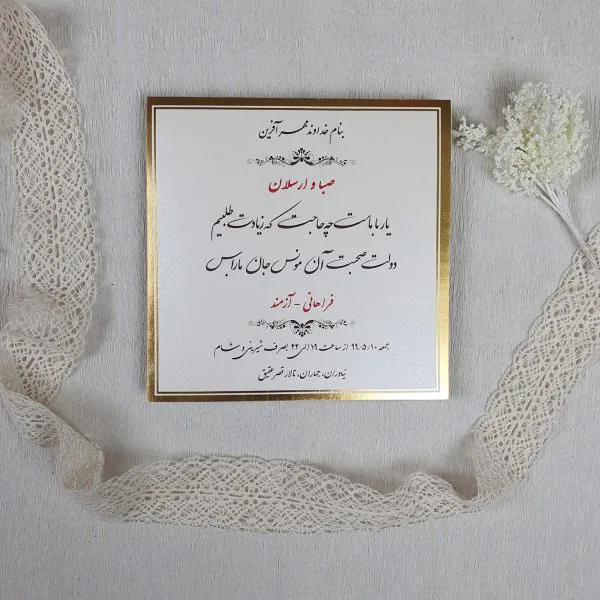 بنام خداوند مهر آفرین
صبا و ارسلان
یار با ماست چه حاجت که زیادت طلبیم
دولت صحبت آن مونس جان ما را بس
فراهانی - آزمند
جمعه ۹۹/۵/۱۰ از ساعت ۱۹ الی ۲۴ بصرف شیرینی و شام
نیاوران، جماران، تالار قصر عقیق